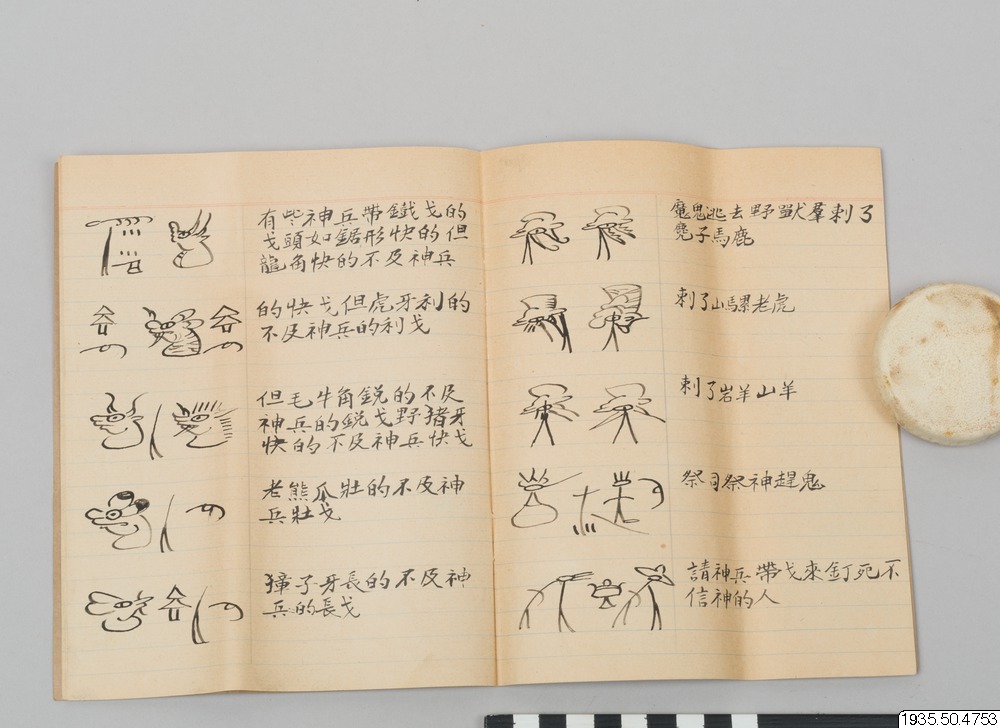 有些神兵帶鐵戈的
戈頭如鋸形快的但
龍角快的不及神兵
的快戈但虎牙利的
不及神兵的利戈
但毛牛角銳的不及
神兵的銳戈野猪牙
快的不及神兵快戈
老熊瓜壯的不及神
兵壯戈
獐子牙長的不及神
兵的長戈
魔鬼逃去野獸羣刺了
麂子馬鹿
刺了山騾老虎
刺了岩羊山羊
祭司祭神趕鬼
請神兵帶戈來釘死不
信神的人
1935.50.4753